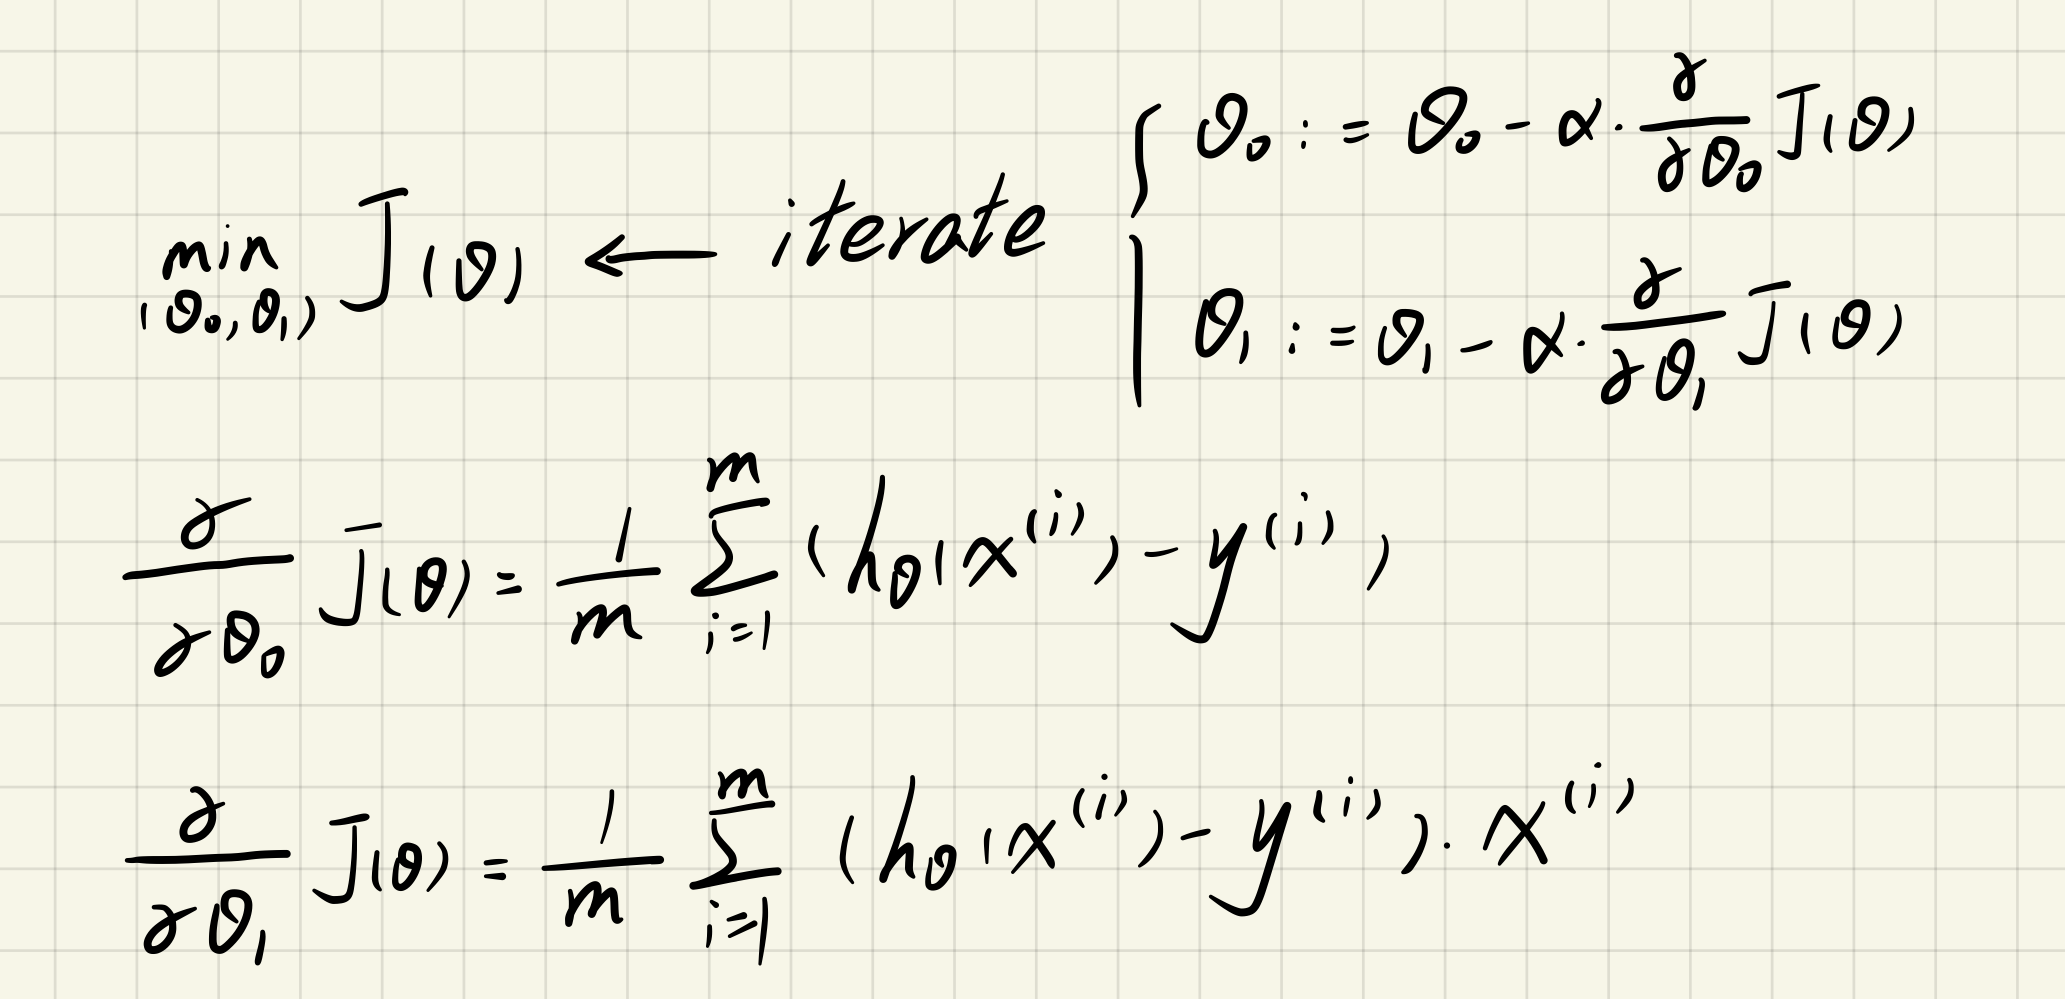 min J(θ) ← iterate { θ₀ := θ₀ - α · ∂/∂θ₀ J(θ)
(θ₀, θ₁)
θ₁ := θ₁ - α · ∂/∂θ₁ J(θ)
∂/∂θ₀ J(θ) = 1/m ∑_{i=1}^{m} (h_θ(x^{(i)}) - y^{(i)})
∂/∂θ₁ J(θ) = 1/m ∑_{i=1}^{m} (h_θ(x^{(i)}) - y^{(i)}) · x^{(i)}